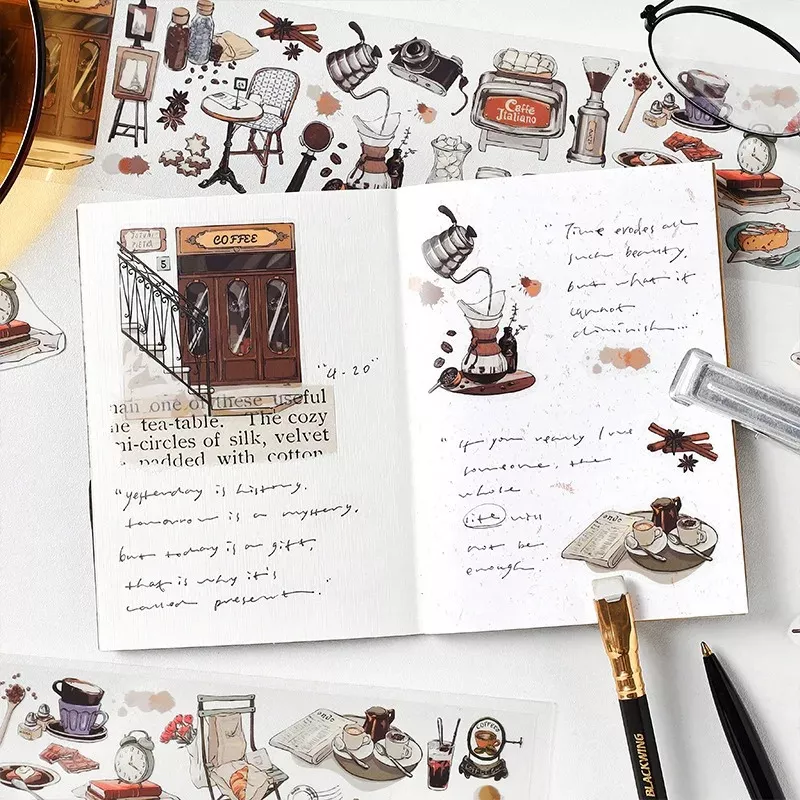 Caffè
Italiano
COFFEE
5
"4-20"
han one of these useful
he tea-table. The cozy
mi-circles of silk, velvet
padded with cotton
"yesterday is history.
tomorrow is a mystery.
but today is a gift,
that is why it's
called present."
"Time erodes all
such beauty,
but what it
cannot
diminish..."
"if you really love
someone, the
whole
life will
not be
enough.
onde
BLACKWING
onde
COFFEE